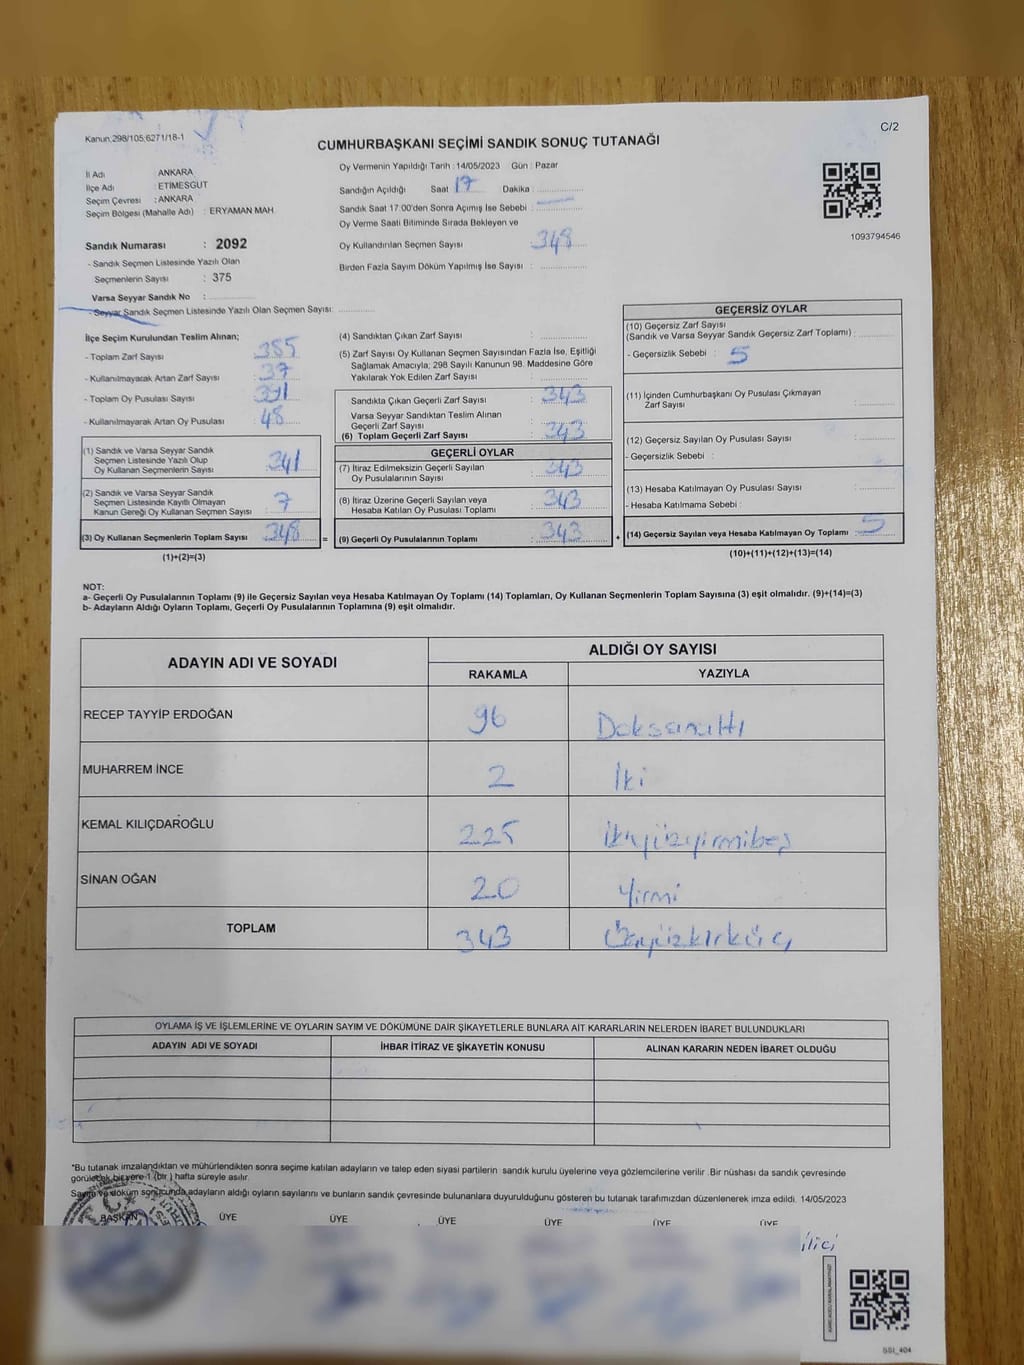 C/2
Kanun 298/105;6271/18-1
CUMHURBAŞKANI SEÇİMİ SANDIK SONUÇ TUTANAĞI
İl Adı ANKARA
İlçe Adı : ETİMESGUT
Seçim Çevresi : ANKARA
Seçim Bölgesi (Mahalle Adı) : ERYAMAN MAH.
Sandık Numarası : 2092
- Sandık Seçmen Listesinde Yazılı Olan
Seçmenlerin Sayısı : 375
Varsa Seyyar Sandık No :
- Seyyar Sandık Seçmen Listesinde Yazılı Olan Seçmen Sayısı:
Oy Vermenin Yapıldığı Tarih : 14/05/2023 Gün : Pazar
Sandığın Açıldığı Saat 17 Dakika :
Sandık Saat 17:00'den Sonra Açımış İse Sebebi :
Oy Verme Saati Bitiminde Sırada Bekleyen ve
Oy Kullandırılan Seçmen Sayısı 348
Birden Fazla Sayım Döküm Yapılmış İse Sayısı :
1093794546
İlçe Seçim Kurulundan Teslim Alınan;
- Toplam Zarf Sayısı 385
- Kullanılmayarak Artan Zarf Sayısı 37
- Toplam Oy Pusulası Sayısı 391
- Kullanılmayarak Artan Oy Pusulası 48
(1) Sandık ve Varsa Seyyar Sandık
Seçmen Listesinde Yazılı Olup
Oy Kullanan Seçmenlerin Sayısı 341
(2) Sandık ve Varsa Seyyar Sandık
Seçmen Listesinde Kayıtlı Olmayan
Kanun Gereği Oy Kullanan Seçmen Sayısı 7
(3) Oy Kullanan Seçmenlerin Toplam Sayısı 348 =
(1)+(2)=(3)
(4) Sandıktan Çıkan Zarf Sayısı :
(5) Zarf Sayısı Oy Kullanan Seçmen Sayısından Fazla İse, Eşitliği
Sağlamak Amacıyla; 298 Sayılı Kanunun 98. Maddesine Göre
Yakılarak Yok Edilen Zarf Sayısı :
Sandıkta Çıkan Geçerli Zarf Sayısı : 343
Varsa Seyyar Sandıktan Teslim Alınan
Geçerli Zarf Sayısı :
(6) Toplam Geçerli Zarf Sayısı 343
GEÇERLİ OYLAR
(7) İtiraz Edilmeksizin Geçerli Sayılan
Oy Pusulalarının Sayısı : 343
(8) İtiraz Üzerine Geçerli Sayılan veya
Hesaba Katılan Oy Pusulası Toplamı : 343
(9) Geçerli Oy Pusulalarının Toplamı : 343 +
GEÇERSİZ OYLAR
(10) Geçersiz Zarf Sayısı
(Sandık ve Varsa Seyyar Sandık Geçersiz Zarf Toplamı) :
- Geçersizlik Sebebi : 5
(11) İçinden Cumhurbaşkanı Oy Pusulası Çıkmayan
Zarf Sayısı :
(12) Geçersiz Sayılan Oy Pusulası Sayısı :
- Geçersizlik Sebebi :
(13) Hesaba Katılmayan Oy Pusulası Sayısı :
- Hesaba Katılmama Sebebi :
(14) Geçersiz Sayılan veya Hesaba Katılmayan Oy Toplamı : 5
(10)+(11)+(12)+(13)=(14)
NOT:
a- Geçerli Oy Pusulalarının Toplamı (9) ile Geçersiz Sayılan veya Hesaba Katılmayan Oy Toplamı (14) Toplamları, Oy Kullanan Seçmenlerin Toplam Sayısına (3) eşit olmalıdır. (9)+(14)=(3)
b- Adayların Aldığı Oyların Toplamı, Geçerli Oy Pusulalarının Toplamına (9) eşit olmalıdır.
ADAYIN ADI VE SOYADI ALDIĞI OY SAYISI
RAKAMLA YAZIYLA
RECEP TAYYİP ERDOĞAN 96 Doksanaltı
MUHARREM İNCE 2 İki
KEMAL KILIÇDAROĞLU 225 İkiyüzyirmibeş
SİNAN OĞAN 20 Yirmi
TOPLAM 343 Üçyüzkırküç
OYLAMA İŞ VE İŞLEMLERİNE VE OYLARIN SAYIM VE DÖKÜMÜNE DAİR ŞİKAYETLERLE BUNLARA AİT KARARLARIN NELERDEN İBARET BULUNDUKLARI
ADAYIN ADI VE SOYADI İHBAR İTİRAZ VE ŞİKAYETİN KONUSU ALINAN KARARIN NEDEN İBARET OLDUĞU
*Bu tutanak imzalandıktan ve mühürlendikten sonra seçime katılan adayların ve talep eden siyasi partilerin sandık kurulu üyelerine veya gözlemcilerine verilir. Bir nüshası da sandık çevresinde
görülecek bir yere 1 (bir ) hafta süreyle asılır.
Sayım ve döküm sonucunda adayların aldığı oyların sayılarını ve bunların sandık çevresinde bulunanlara duyurulduğunu gösteren bu tutanak tarafımızdan düzenlenerek imza edildi. 14/05/2023
BAŞKAN ÜYE ÜYE ÜYE ÜYE ÜYE ÜYE
SSI_404